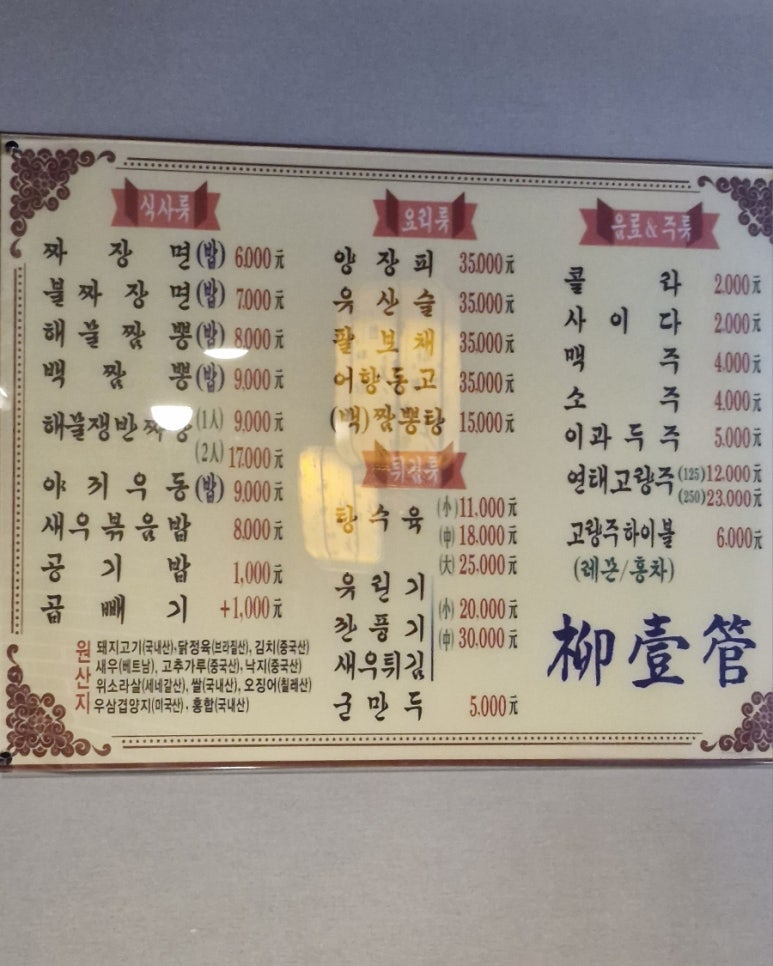 식사류
짜장면(밥) 6.000元
불짜장면(밥) 7.000元
해물짬뽕(밥) 8.000元
백짬뽕(밥) 9.000元
해물쟁반짜장 (1人) 9.000元
(2人) 17.000元
야끼우동(밥) 9.000元
새우볶음밥 8.000元
공기밥 1,000元
곱빼기 +1,000元
원산지
돼지고기(국내산), 닭정육(브라질산), 김치(중국산)
새우(베트남), 고추가루(중국산), 낙지(중국산)
위소라살(세네갈산), 쌀(국내산), 오징어(칠레산)
우삼겹양지(미국산), 홍합(국내산)
요리류
양장피 35.000元
유산슬 35.000元
팔보채 35.000元
어향동고 35.000元
(백)짬뽕탕 15.000元
튀김류
탕수육 (小) 11.000元
(中) 18.000元
(大) 25.000元
유린기
깐풍기 (小) 20.000元
새우튀김 (中) 30.000元
군만두 5.000元
음료&주류
콜라 2.000元
사이다 2.000元
맥주 4.000元
소주 4.000元
이과두주 5.000元
연태고량주 (125) 12.000元
(250) 23.000元
고량주하이볼 6.000元
(레몬/홍차)
柳壹管